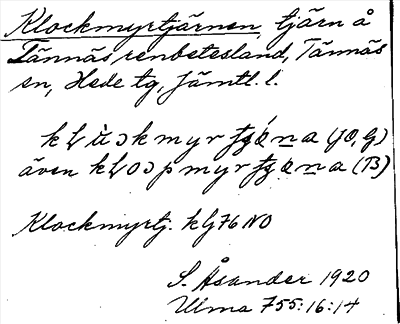 Klockmyrtjärnen, tjärn å
Tännäs renbetesland, Tännäs
sn, Hede tg, Jämtl. l.
även
Klockmyrtj. kG76NO
S. Åsander 1920
Ulma 755:16:14